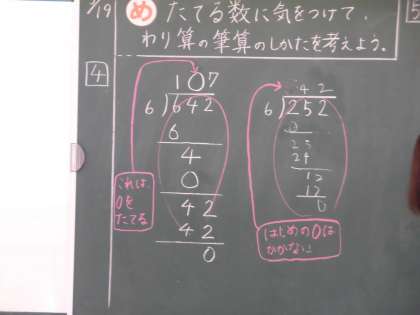 2/19
め たてる数に気をつけて、
わり算の筆算のしかたを考えよう。
4
107
6)642
6
4
0
42
42
0
これは、
0を
たてる
42
6)252
0
25
24
12
12
0
はじめの0は
かかない
5